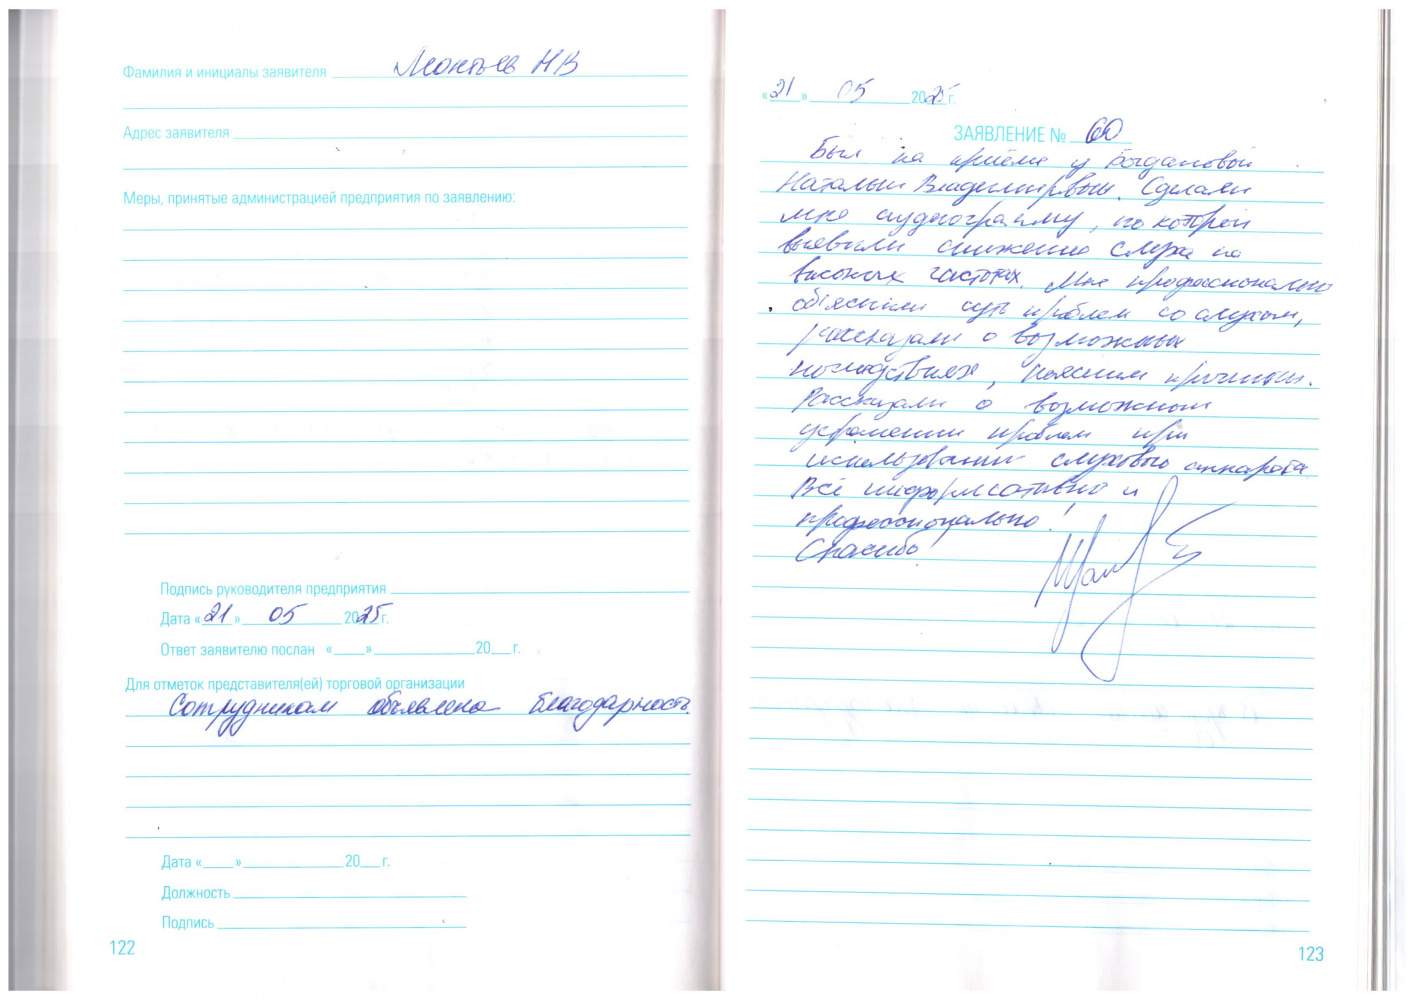 Фамилия и инициалы заявителя Леонтьев НВ
Адрес заявителя
Меры, принятые администрацией предприятия по заявлению:
Подпись руководителя предприятия
Дата «21» 05 2025г.
Ответ заявителю послан «___» ___ 20__г.
Для отметок представителя(ей) торговой организации
Сотрудникам объявлена благодарность.
Дата «___» ___ 20__г.
Должность
Подпись
122
«21» 05 2025г.
ЗАЯВЛЕНИЕ № 60
Был на приёме у Богдановой
Натальи Владимировны. Сделали
мне аудиограмму, по которой
выявили снижение слуха на
высоких частотах. Мне профессионально
объяснили суть проблем со слухом,
рассказали о возможных
последствиях, пояснили причины.
Рассказали о возможном
устранении проблем при
использовании слухового аппарата
Всё информативно и
профессионально!
Спасибо
123